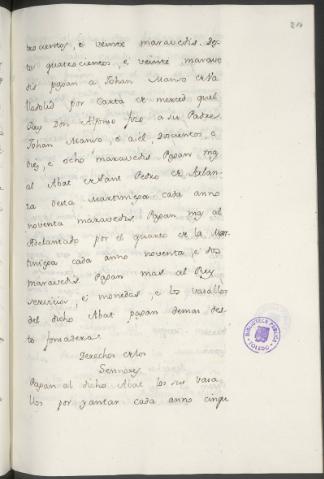 trocientos, e veinte maravedis. Des-
tos quatrocientos, e veinte marave
dis pagan a Johan Manso de Va
lladolid por Carta de merced quel
Rey Don Alfonso fizo a su Padre
Johan Manso, e a el, Docientos, e
diez, e ocho maravedis Pagan mas
al Abat de Sant Pedro de Arlan
za desta Martiniega cada anno
noventa maravedis. Pagan mas al
Adelantado por el quarto de la Mar
tiniega cada anno noventa, e dos
maravedis Pagan mas al Rey
servicios, e monedas, e los vasallos
del dicho Abat pagan demas des-
to fonsadera.
Derechos de los
Sennores
Pagan al dicho Abat los sus vasa
llos por yantar cada anno cinqu
BIBLIOTECA PUBLICA